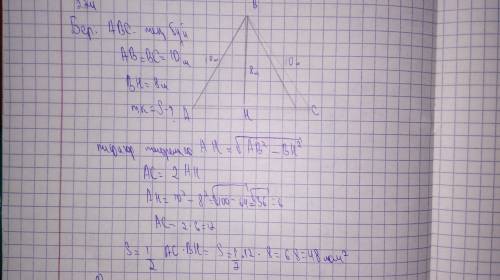 Бер. ABC тең бүй
AB=BC=10м
BH=8м
т.к=S-?
B
10м
10м
8м
A
H
C
пифагор теорема AH=√AB²-BH²
AC=2AH
AH=10²-8²=√100-64=√36=6
AC=2·6=12
S=1/2 AC·BH= S=1/2·12·8=6·8=48